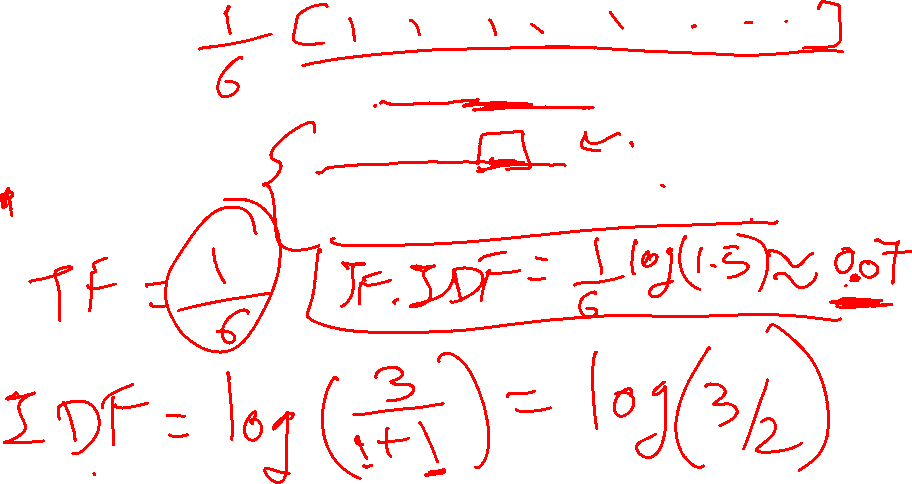 1/6 [ 1, 1, 1, 1, 1, . . . . ]
TF = 1/6
TF.IDF = 1/6 log(1.5) ≈ 0.07
IDF = log(3/(1+1)) = log(3/2)